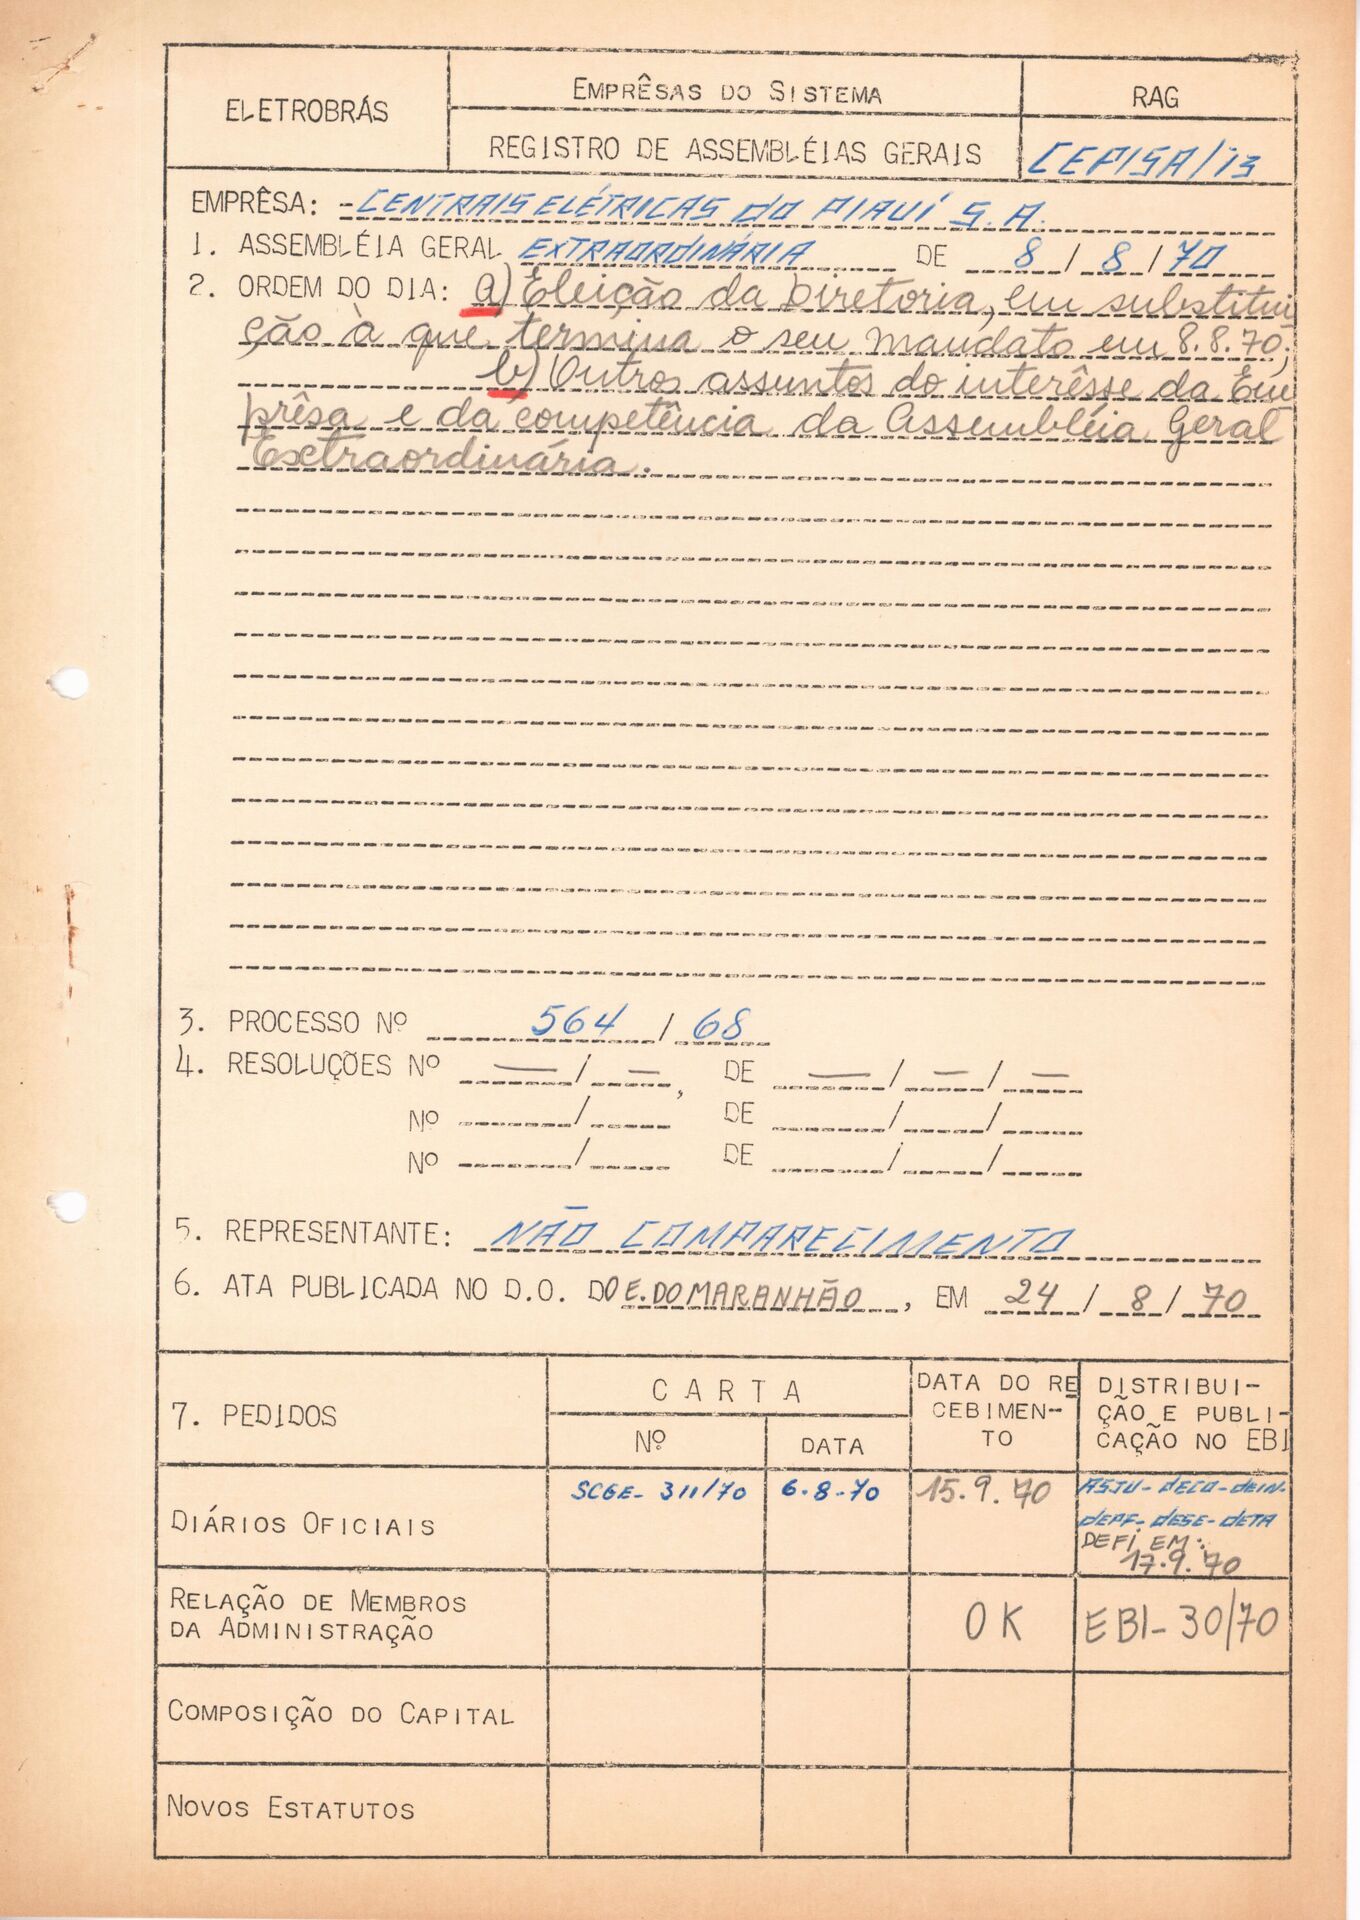 ELETROBRÁS
EMPRÊSAS DO SISTEMA
RAG
REGISTRO DE ASSEMBLÉIAS GERAIS
CEPISA/13
EMPRÊSA: - CENTRAIS ELÉTRICAS DO PIAUÍ S.A.
1. ASSEMBLÉIA GERAL EXTRAORDINÁRIA DE 8 / 8 / 70
2. ORDEM DO DIA: a) Eleição da Diretoria, em substitui
ção à que termina o seu mandato em 8.8.70;
b) Outros assuntos do interêsse da Em
prêsa e da competência da Assembléia Geral
Extraordinária.
3. PROCESSO Nº 564 / 68
4. RESOLUÇÕES Nº — / — , DE — / — / —
Nº / DE / /
Nº / DE / /
5. REPRESENTANTE: NÃO COMPARECIMENTO
6. ATA PUBLICADA NO D.O. DO E. DO MARANHÃO, EM 24 / 8 / 70
7. PEDIDOS
CARTA
Nº
DATA
DATA DO RE
CEBIMEN-
TO
DISTRIBUI-
ÇÃO E PUBLI-
CAÇÃO NO EBI
DIÁRIOS OFICIAIS
SCGE- 311/70
6-8-70
15.9.70
ASJU-DECO-DEIN-
DEPF-DESE-DETA
DEFI EM:
17.9.70
RELAÇÃO DE MEMBROS
DA ADMINISTRAÇÃO
OK
EBI-30/70
COMPOSIÇÃO DO CAPITAL
NOVOS ESTATUTOS